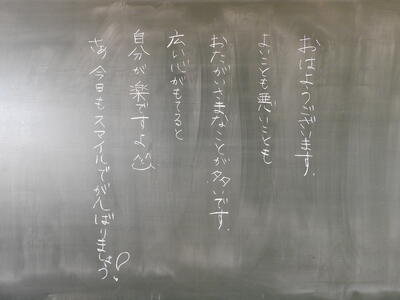 おはようございます.
よいことも悪いことも
おたがいさまなことが多いです.
広い心がもてると
自分が楽ですよ
さあ今日もスマイルでがんばりましょう!